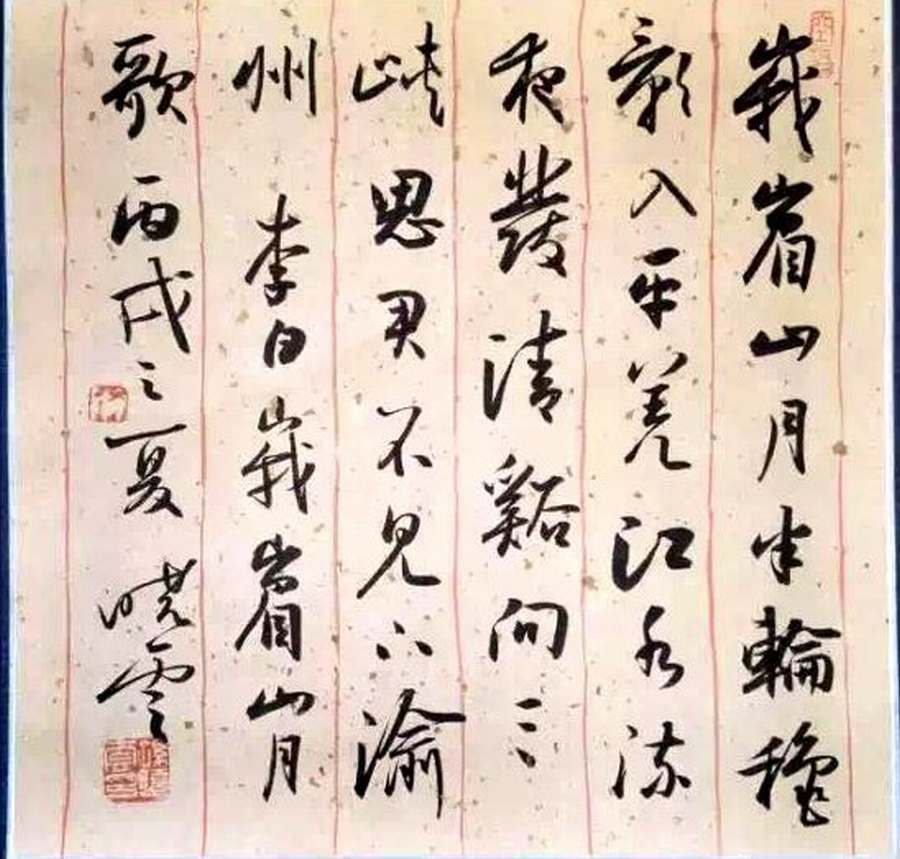 峩眉山月半輪穐
影入平羌江水流
夜發清谿向三
峡思君不見下渝
州 李白峩眉山月
歌丙戌之夏 晓雲